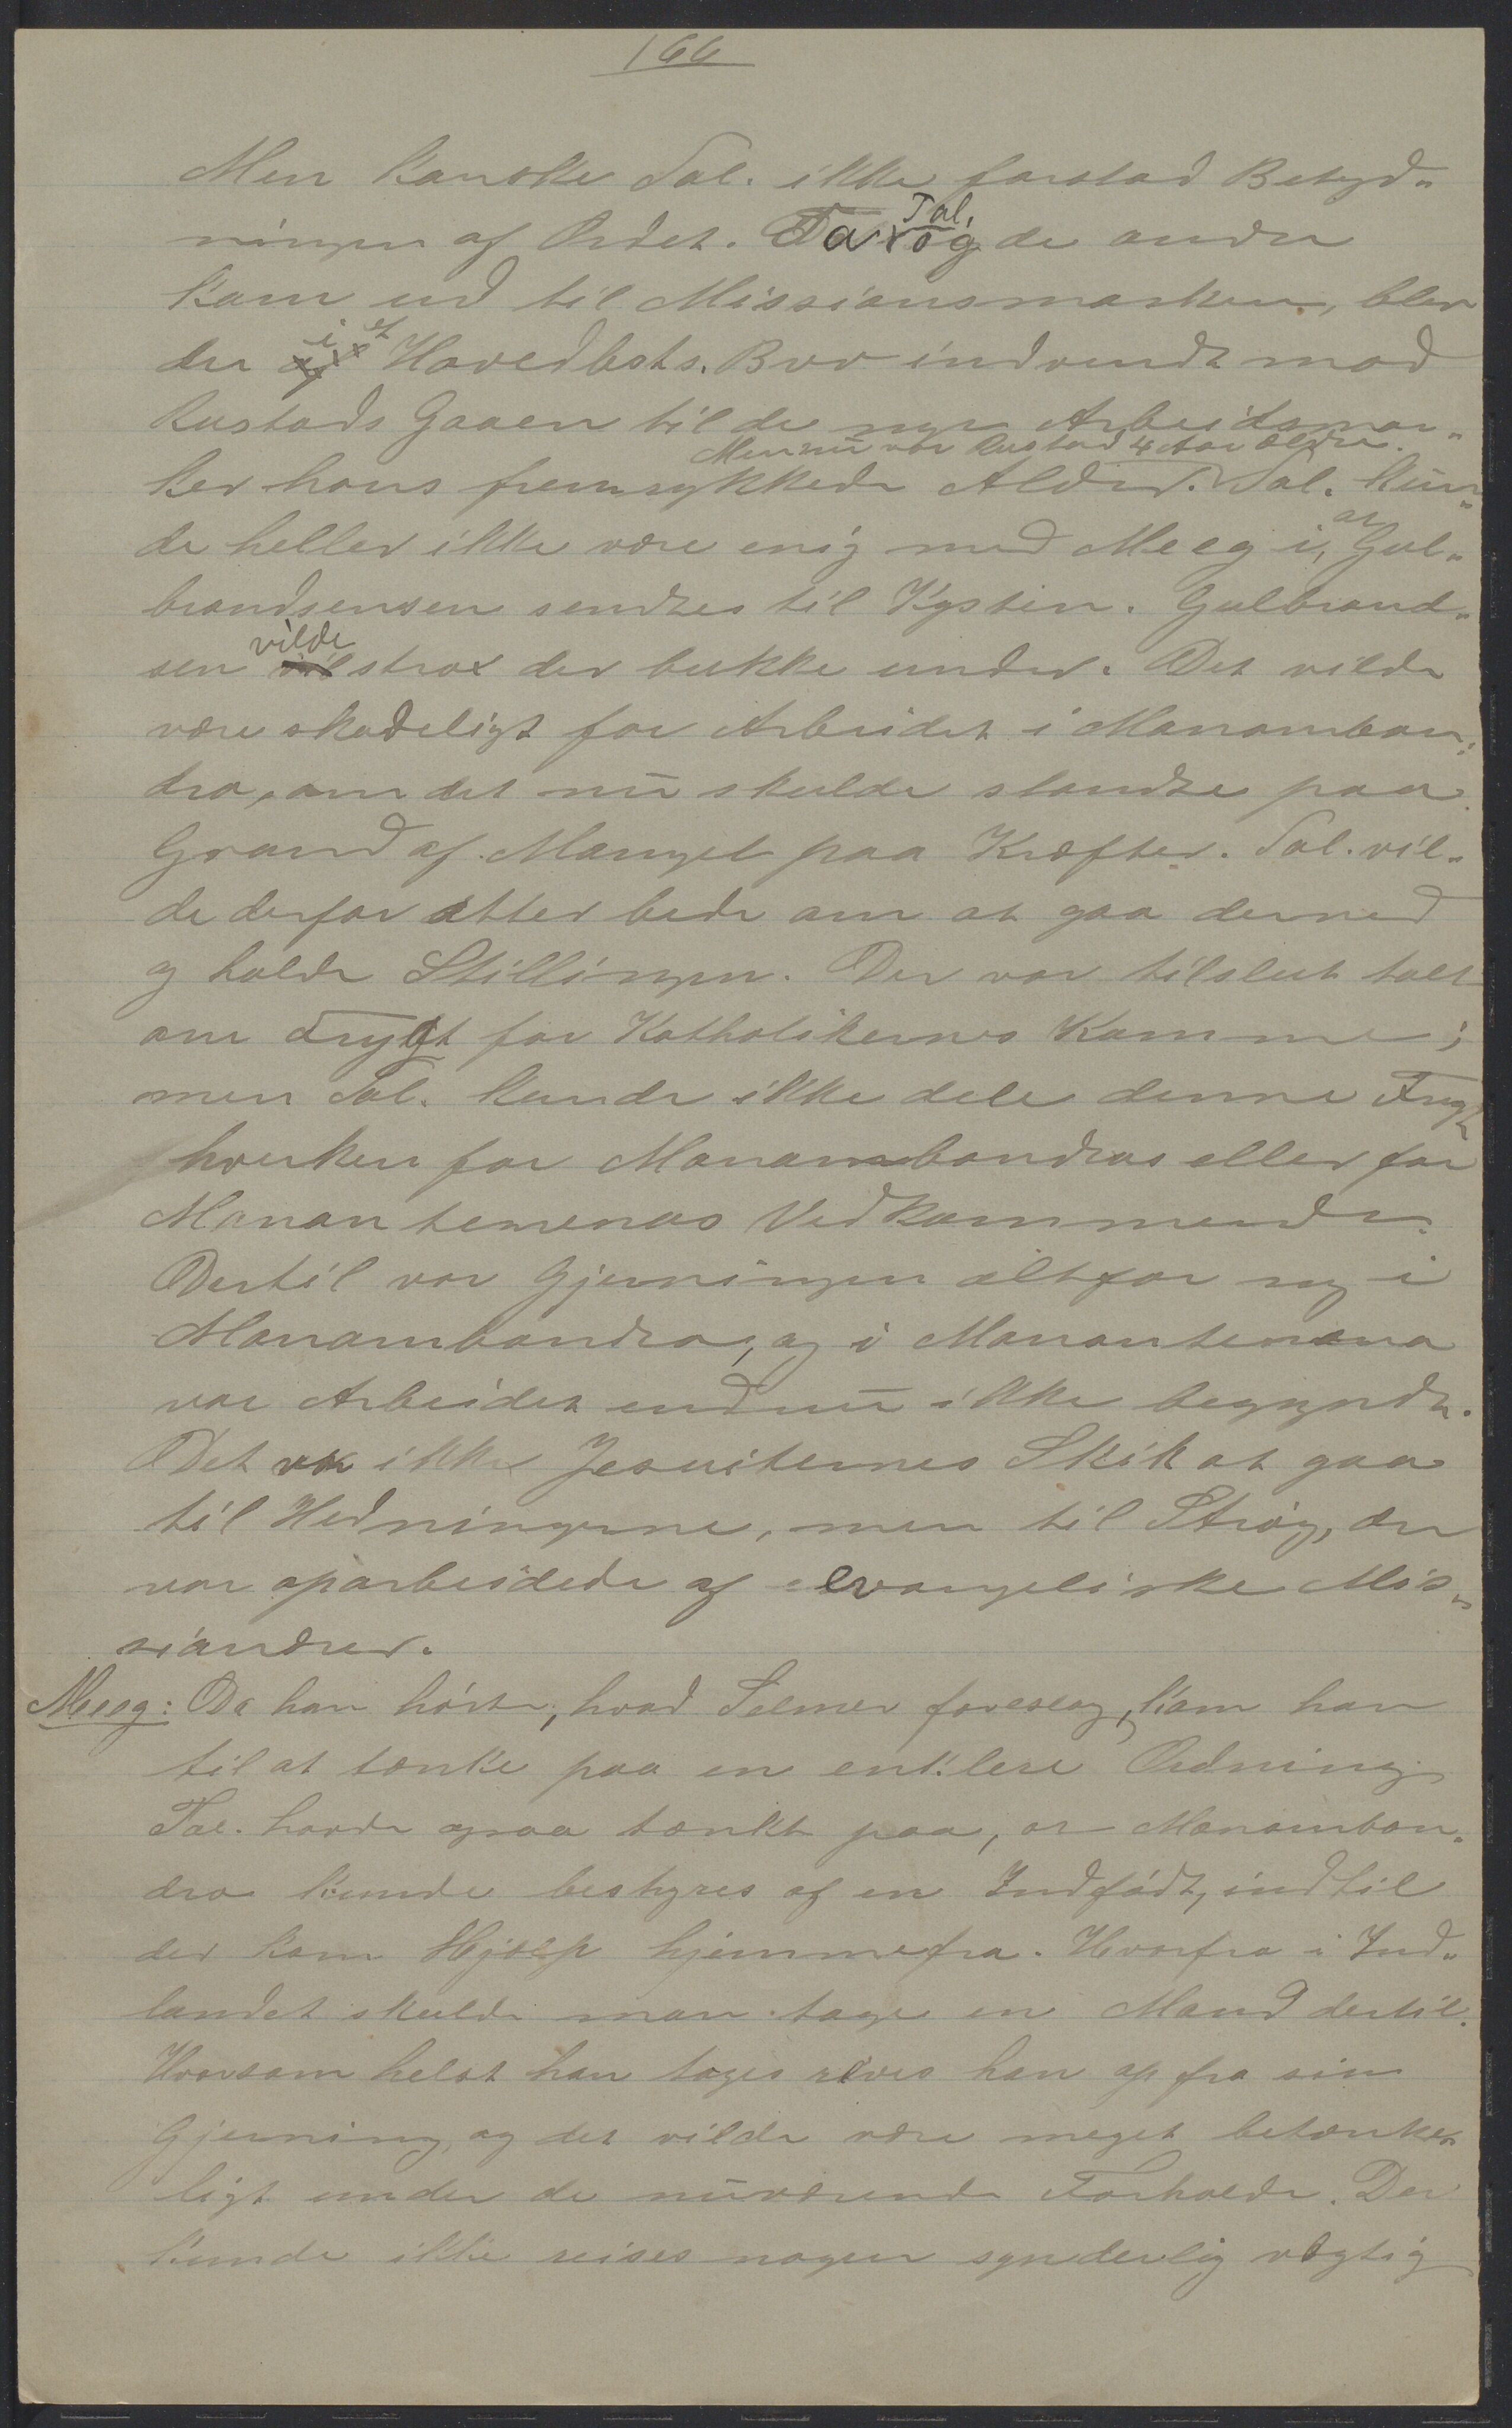 166
Men kanske Tal. ikke forstod Betyd-
ningen af Ordet. Da Tal. og de andre
kom ud til Missionsmarken, blev
der i et Hovedbests. Brev indvendt mod
Rustads Gaaen til de nye Arbeidsmar-
Men nu var Rustad 4 Aar ældre.
ker hans fremrykkede Alder. Tal. kun-
de heller ikke være enig med Meeg i, at Gul-
brandsensen sendtes til Kysten. Gulbrand-
sen vilde strax der bukke under. Det vilde
være skadeligt for Arbeidet i Manamban-
dro, om det nu skulde standse paa
Grund af Mangel paa Kræfter. Tal. vil-
de derfor atter bede om at gaa derned
og holde Stillingen. Der var tilslut talt
om Frygt for Katholikernes Komme;
men Tal. kunde ikke dele denne Frygt
hverken for Manambondros eller for
Manantenenas Vedkommende.
Dertil var Gjerningen altfor ny i
Manambondro, og i Manantenena
var Arbeidet endnu ikke begyndt.
Det var ikke Jesuiternes Skik at gaa
til Hedningerne, men til Strøg, der
var oparbeidede af evangeliske Mis-
sionærer.
Meeg: Da han hørte, hvad Selmer foreslog, kom han
til at tænke paa en enklere Ordning.
Tal. havde ogsaa tænkt paa, at Manambon-
dro kunde bestyres af en Indfødt, indtil
der kom Hjælp hjemmefra. Hvorfra i Ind-
landet skulde man tage en Mand dertil.
Hvorsom helst han toges rives han op fra sin
Gjerning, og det vilde være meget betænke-
ligt under de nuværende Forholde. Der
kunde ikke reises nogen synderlig vægtig